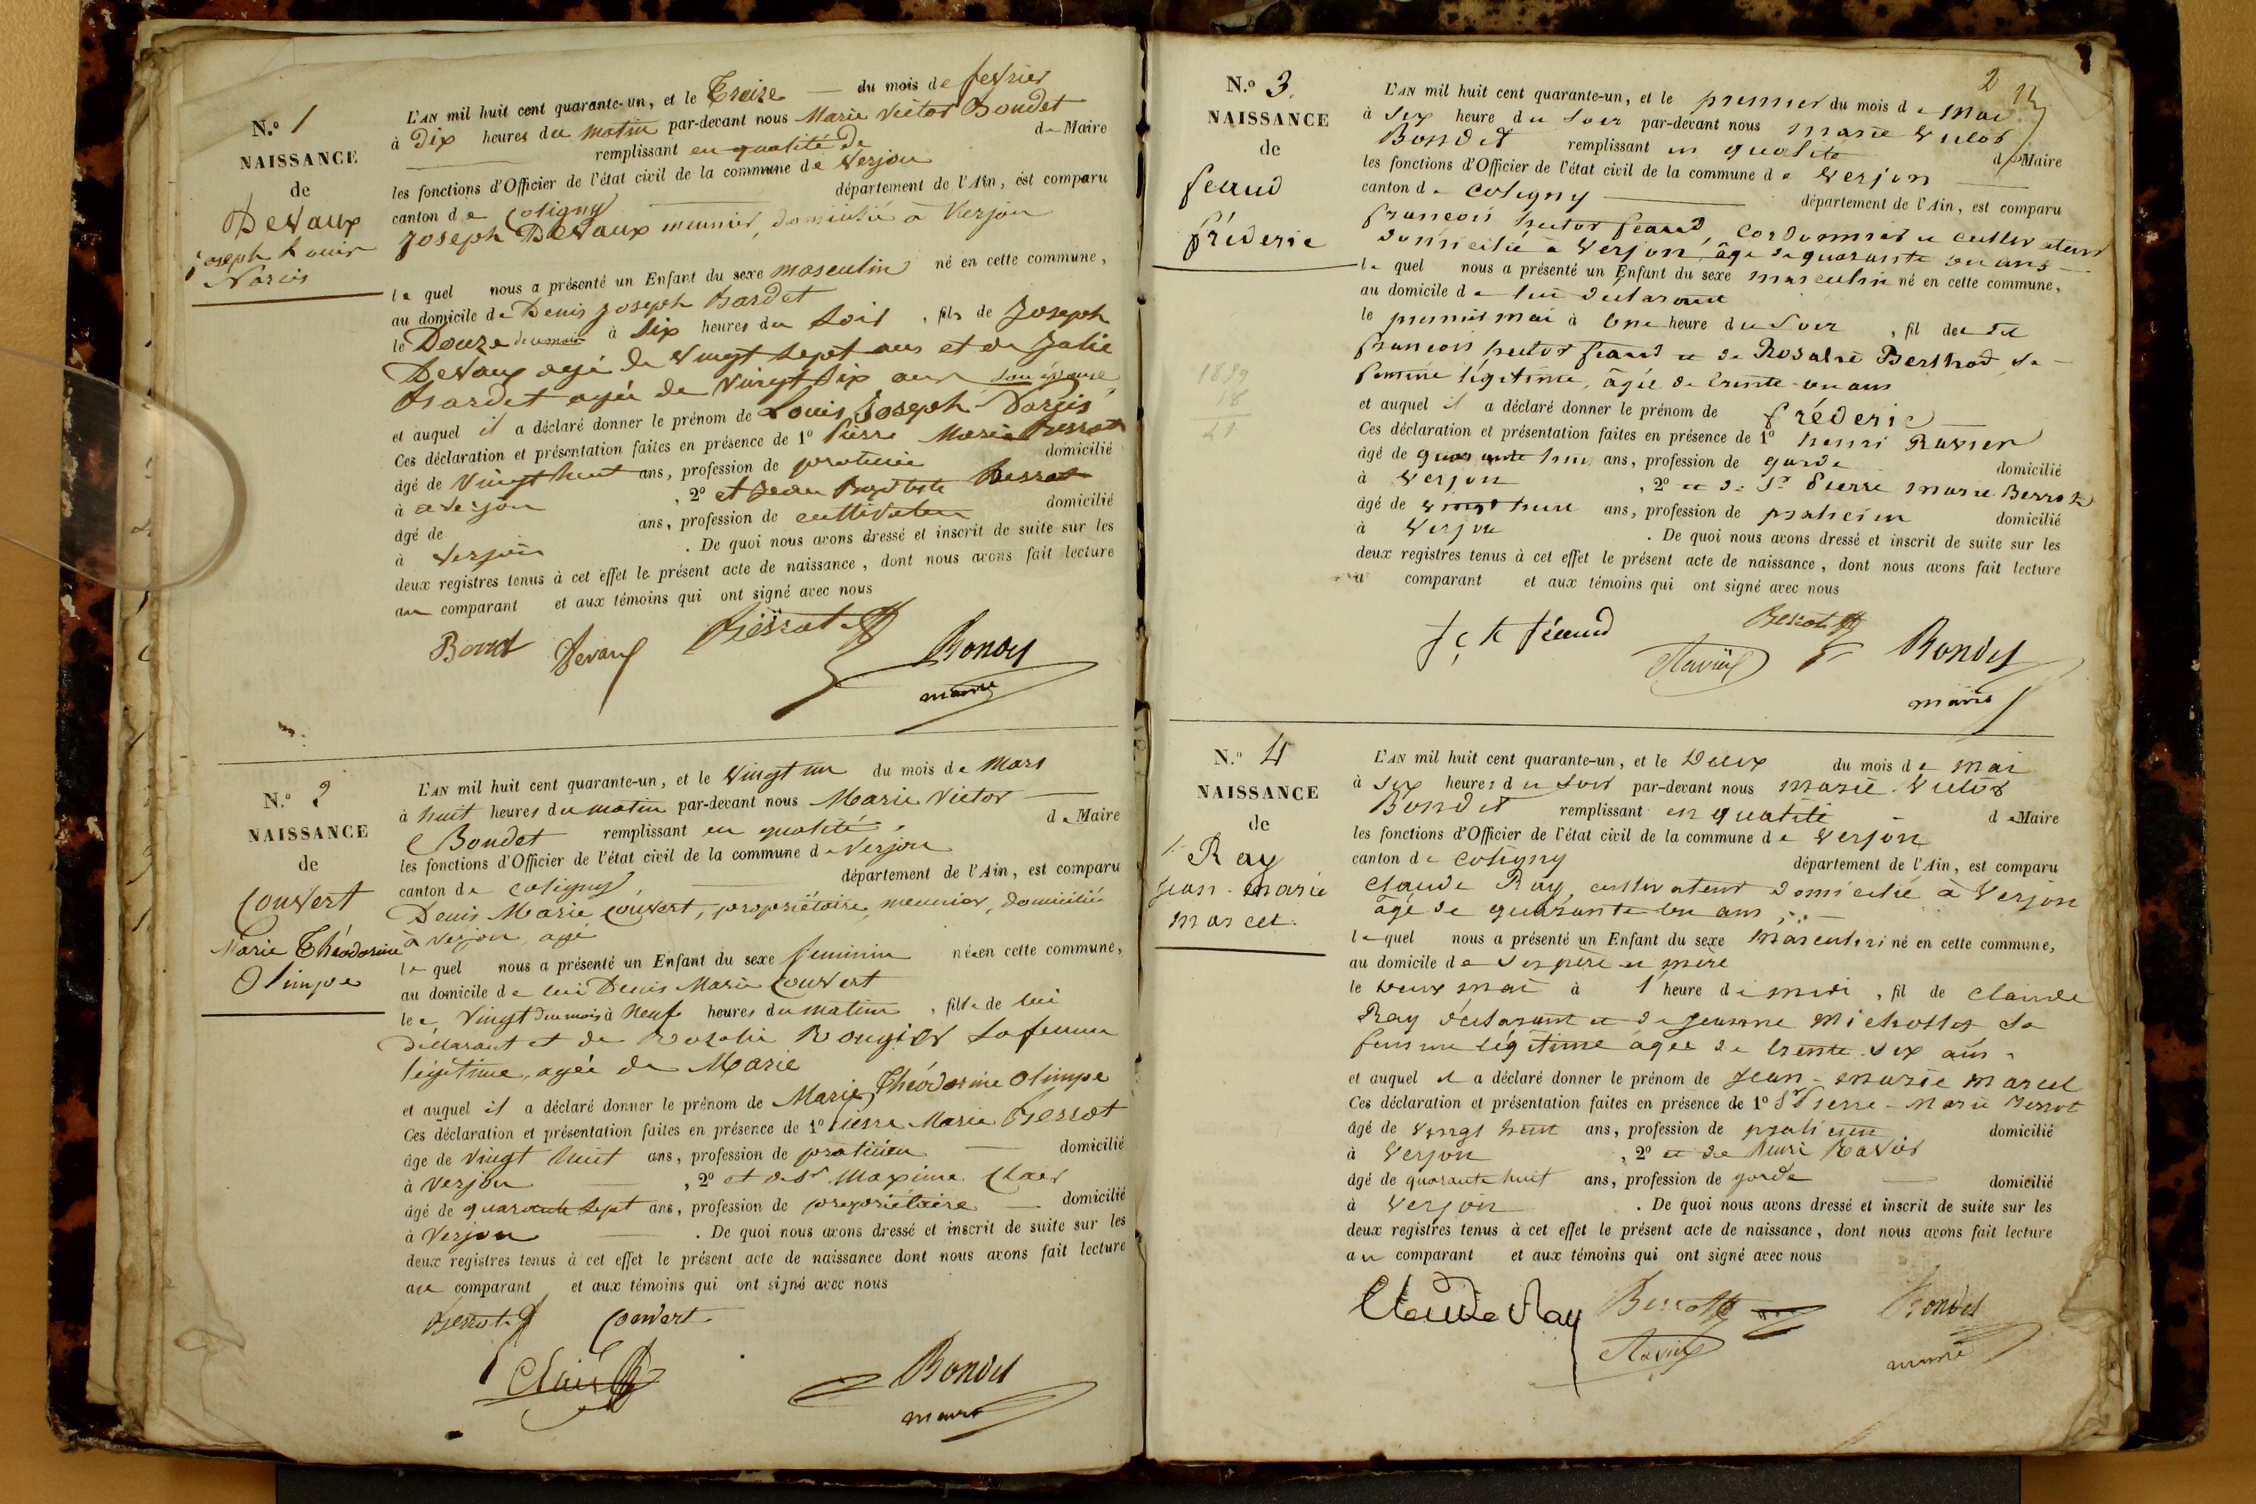 N.º 1
NAISSANCE
de
Devaux
joseph Louis
Narcis
L'AN mil huit cent quarante-un, et le Treize du mois de fevrier
à Dix heures du matin par-devant nous Marie Victor Bondet
remplissant en qualité de de Maire
les fonctions d'Officier de l'état civil de la commune de Verjon
canton de Coligny département de l'Ain, est comparu
Joseph Devaux meunier, domicilié à Verjon
le quel nous a présenté un Enfant du sexe masculin né en cette commune,
au domicile de Denis Joseph Bardet
le Douze du mois à Six heures du Soir, fils de Joseph
Devaux agé de vingt sept ans et de Julie
Bardet agée de vingt six ans son épouse
et auquel il a déclaré donner le prénom de Louis Joseph Narcis
Ces déclaration et présentation faites en présence de 1º Pierre Marie Berrot
âgé de vingt huit ans, profession de praticien domicilié
à a verjon, 2º et Jean Baptiste Berrot
âgé de ans, profession de cultivateur domicilié
à Verjon. De quoi nous avons dressé et inscrit de suite sur les
deux registres tenus à cet effet le présent acte de naissance, dont nous avons fait lecture
au comparant et aux témoins qui ont signé avec nous
Devaux Berrot Bondet
maire
N.º 2
NAISSANCE
de
Couvert
Marie Théodorine
Olimpe
L'AN mil huit cent quarante-un, et le Vingt un du mois de Mars
à huit heures du matin par-devant nous Marie Victor
Bondet remplissant en qualité de Maire
les fonctions d'Officier de l'état civil de la commune de Verjon
canton de coligny département de l'Ain, est comparu
Denis Marie Couvert, propriétaire, meunier, domicilié
à Verjon, agé
le quel nous a présenté un Enfant du sexe feminin née en cette commune,
au domicile de lui Denis Marie Couvert
le Vingt du mois à Neuf heures du matin, fille de lui
déclarant et de Rosalie Rougier sa femme
légitime, agée de Marie
et auquel il a déclaré donner le prénom de Marie Théodorine Olimpe
Ces déclaration et présentation faites en présence de 1º Pierre Marie Berrot
âge de vingt huit ans, profession de praticien domicilié
à Verjon, 2º et de Sr Maxime Clair
âgé de quarante sept ans, profession de propriétaire domicilié
à Verjon. De quoi nous avons dressé et inscrit de suite sur les
deux registres tenus à cet effet le présent acte de naissance dont nous avons fait lecture
au comparant et aux témoins qui ont signé avec nous
Berrot Couvert
Clair Bondet
maire
2
N.º 3.
NAISSANCE
de
feaud
fréderic
1839
18
21
L'AN mil huit cent quarante-un, et le premier du mois de Mai
à Six heure du Soir par-devant nous Marie Victor
Bondet remplissant en qualité de Maire
les fonctions d'Officier de l'état civil de la commune de Verjon
canton de Coligny département de l'Ain, est comparu
françois hector feaud, cordonnier et cultivateur
domicilié à Verjon, âgé de quarante un ans
le quel nous a présenté un Enfant du sexe masculin né en cette commune,
au domicile de lui déclarant
le premier mai à Une heure du Soir, fil de dit
françois hector feaud et de Rosalie Berthod sa
femme légitime, âgée de trente-un ans
et auquel il a déclaré donner le prénom de fréderic
Ces déclaration et présentation faites en présence de 1º henri Ravier
âgé de quarante huit ans, profession de garde domicilié
à Verjon, 2º et de Sr Pierre Marie Berrot
âgé de vingt huit ans, profession de praticien domicilié
à Verjon. De quoi nous avons dressé et inscrit de suite sur les
deux registres tenus à cet effet le présent acte de naissance, dont nous avons fait lecture
au comparant et aux témoins qui ont signé avec nous
féaud Berrot
Ravier Bondet
maire
N.º 4
NAISSANCE
de
Ray
Jean-Marie
Marcel
L'AN mil huit cent quarante-un, et le Deux du mois de Mai
à Six heures du Soir par-devant nous Marie Victor
Bondet remplissant en qualité de Maire
les fonctions d'Officier de l'état civil de la commune de Verjon
canton de Coligny département de l'Ain, est comparu
Claude Ray, cultivateur domicilié à Verjon
âgé de quarante un ans
le quel nous a présenté un Enfant du sexe masculin né en cette commune,
au domicile de Ses père et mère
le Deux mai à 1 heure de midi, fil de Claude
Ray déclarant et de Jeanne Michollet sa
femme légitime agée de trente-six ans
et auquel il a déclaré donner le prénom de Jean-Marie Marcel
Ces déclaration et présentation faites en présence de 1º Sr Pierre-Marie Berrot
âgé de vingt huit ans, profession de praticien domicilié
à Verjon, 2º et de henri Ravier
âgé de quarante huit ans, profession de garde domicilié
à Verjon. De quoi nous avons dressé et inscrit de suite sur les
deux registres tenus à cet effet le présent acte de naissance, dont nous avons fait lecture
au comparant et aux témoins qui ont signé avec nous
Claude Ray Berrot Bondet
Ravier maire